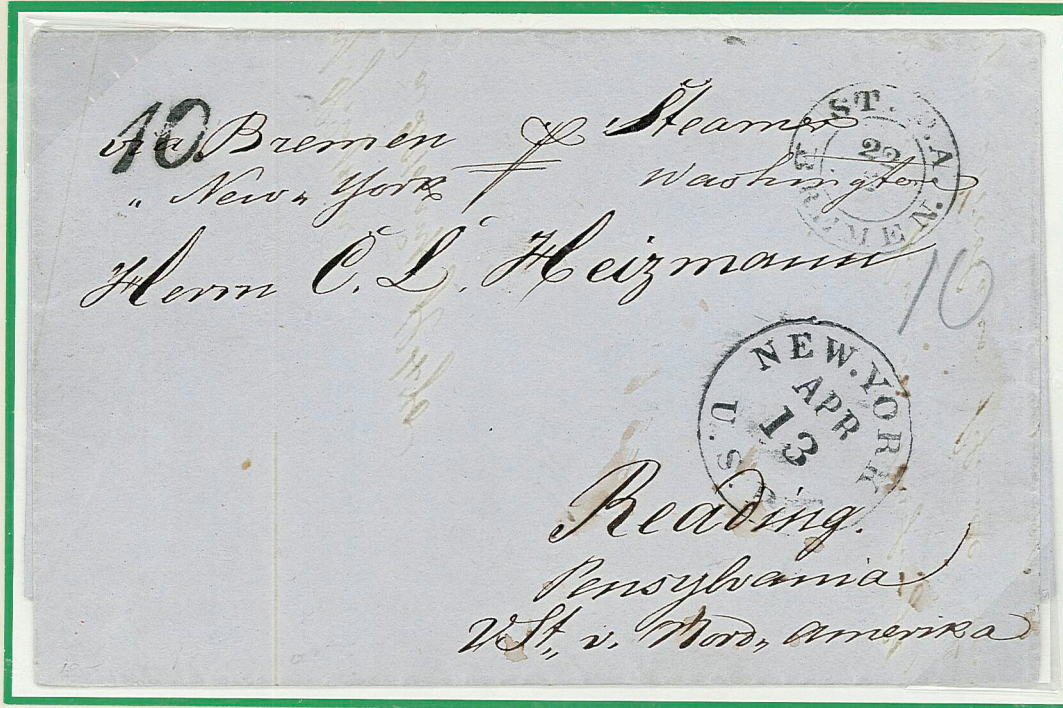 10
via Bremen pr Steamer
„ New„ York Washington
ST. P. A.
22
BREMEN.
Herrn C. L. Heizmann
10
NEW. YORK
APR
13
U.S.
Reading.
Pensylvania
VSt„ v. Nord„ Amerika